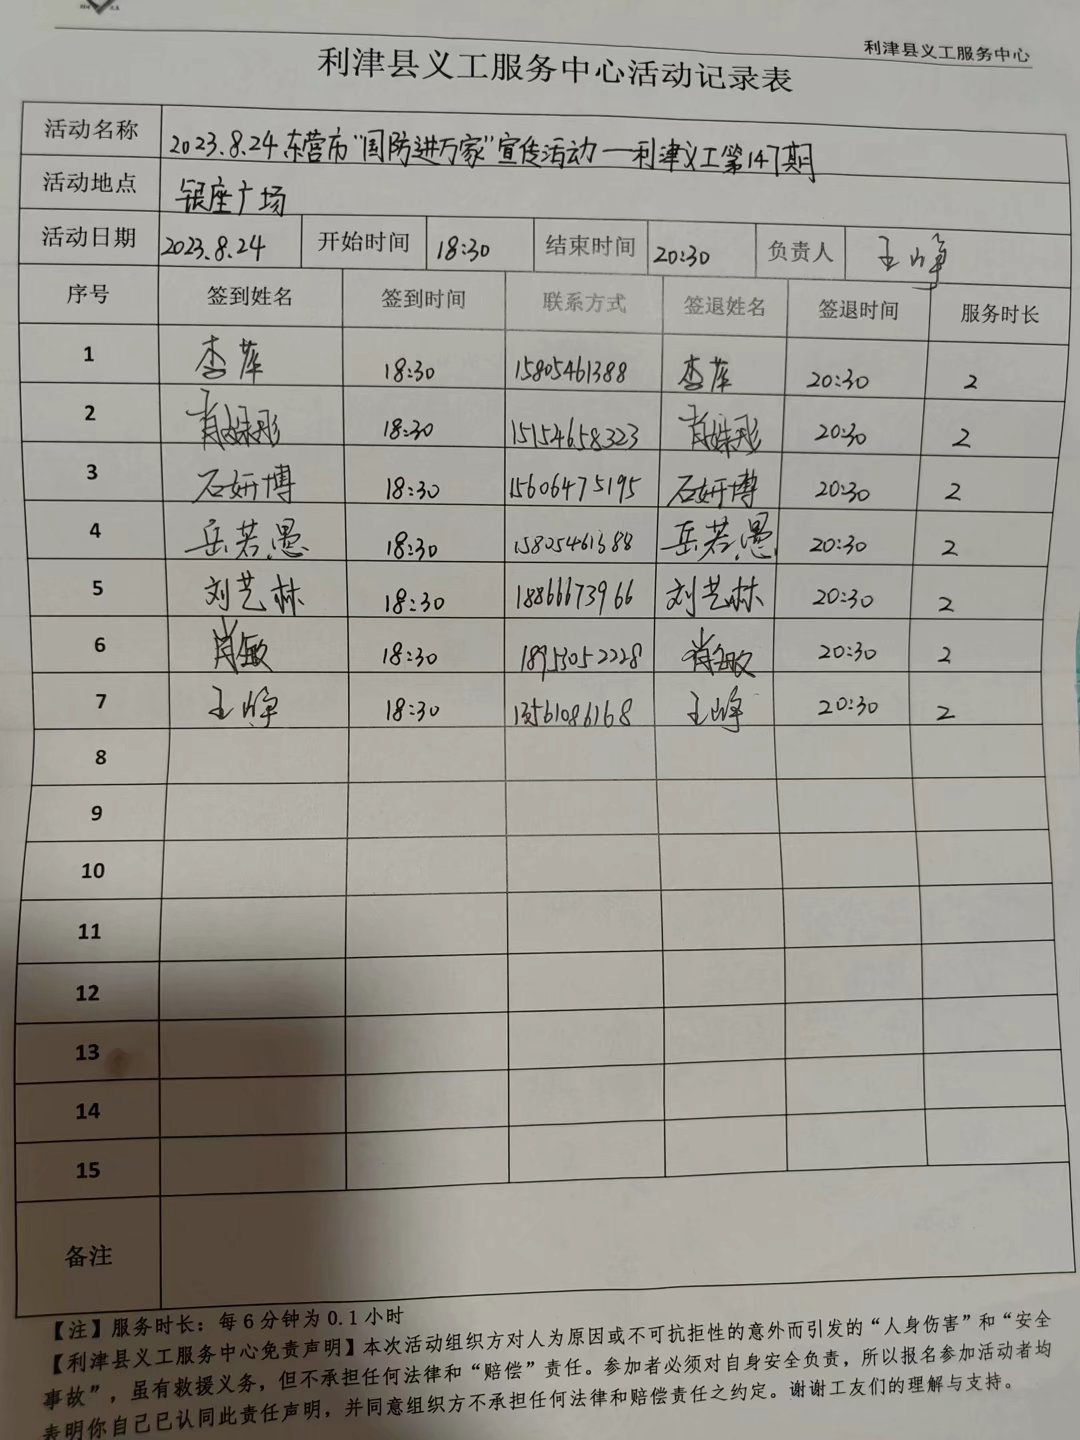 利津县义工服务中心
利津县义工服务中心活动记录表
活动名称 2023.8.24东营市“国防进万家”宣传活动—利津义工第147期
活动地点 银座广场
活动日期 2023.8.24 开始时间 18:30 结束时间 20:30 负责人 王峥
序号 签到姓名 签到时间 联系方式 签退姓名 签退时间 服务时长
1 李萍 18:30 15805461388 李萍 20:30 2
2 肖姝彤 18:30 15154658323 肖姝彤 20:30 2
3 石妍博 18:30 15606475195 石妍博 20:30 2
4 岳若愚 18:30 15805461388 岳若愚 20:30 2
5 刘艺林 18:30 18866673966 刘艺林 20:30 2
6 肖敏 18:30 18953052228 肖敏 20:30 2
7 王峥 18:30 13561086168 王峥 20:30 2
8
9
10
11
12
13
14
15
备注
【注】服务时长：每6分钟为0.1小时
【利津县义工服务中心免责声明】本次活动组织方对人为原因或不可抗拒性的意外而引发的“人身伤害”和“安全
事故”，虽有救援义务，但不承担任何法律和“赔偿”责任。参加者必须对自身安全负责，所以报名参加活动者均
表明你自己已认同此责任声明，并同意组织方不承担任何法律和赔偿责任之约定。谢谢工友们的理解与支持。